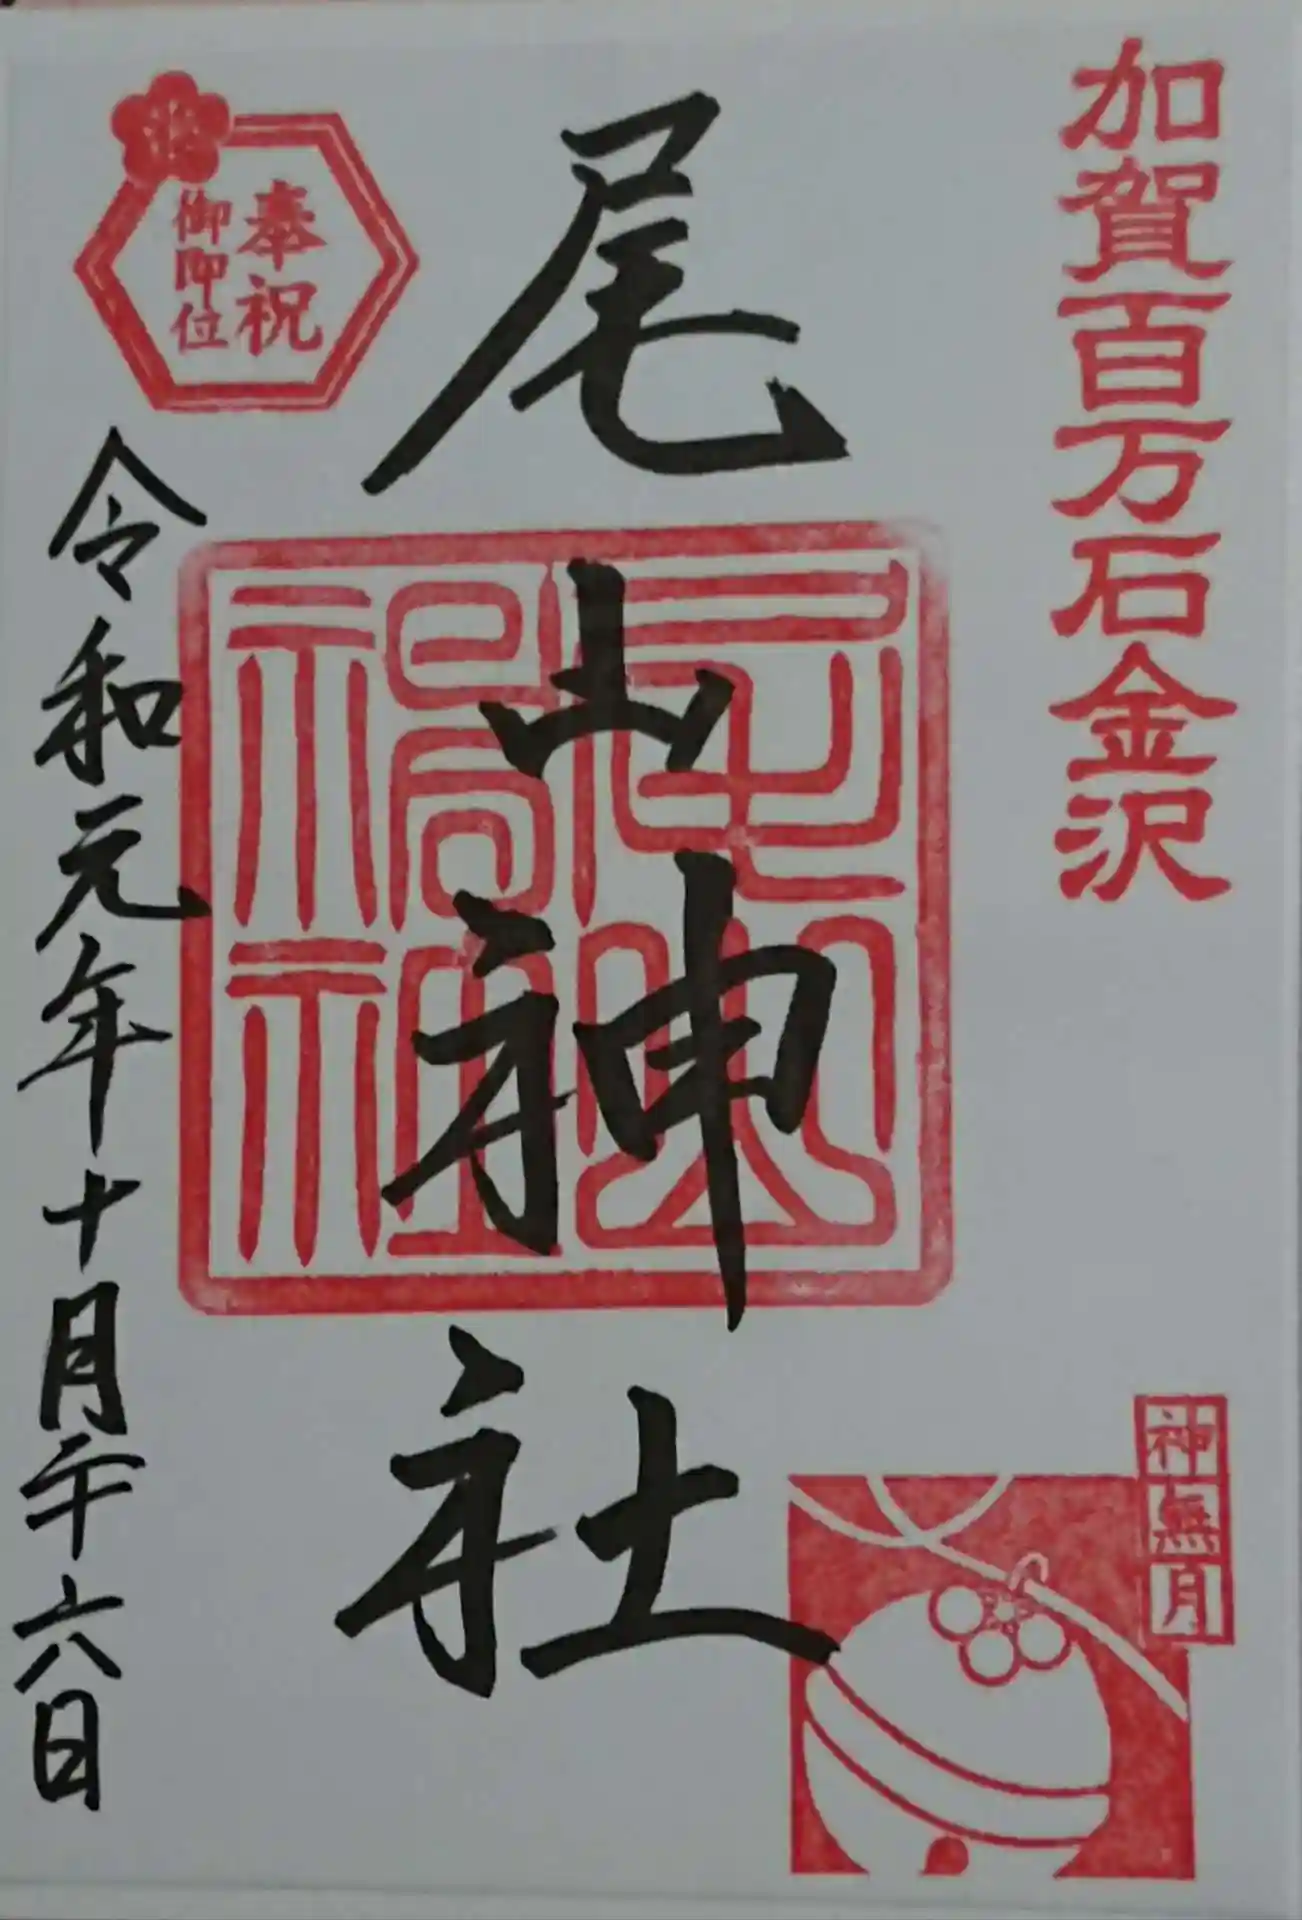 加賀百万石金沢
神無月
尾山神社
奉祝
御即位
令和元年十月二十六日